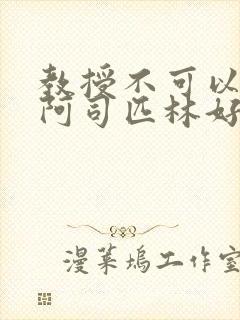 教授不可以
阿司匹林好
漫莱坞工作室